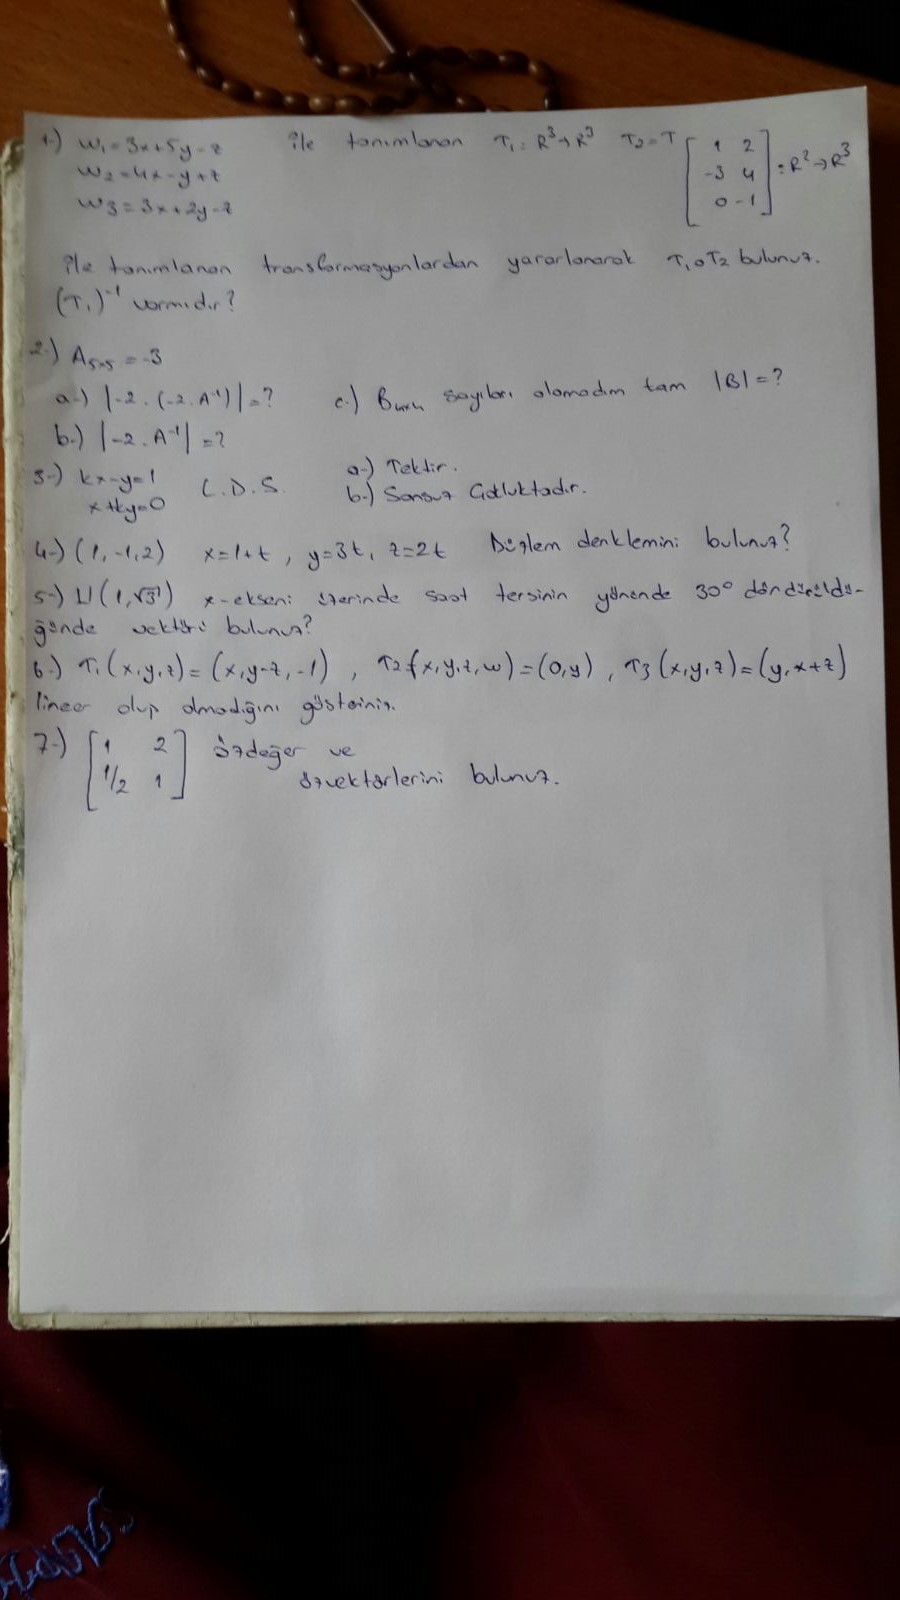 1-) W1=3x+5y-z ile tanımlanan T1: R^3→R^3 T2=T [1 2; -3 4; 0 -1] : R^2→R^3
W2=4x-y+z
W3=3x+2y-z
ile tanımlanan transformasyonlardan yararlanarak T1oT2 bulunuz.
(T1)^-1 varmıdır?
2-) A5x5=-3
a-) |-2.(-2.A^-1)|=? c-) B4x4 sayıları alamadım tam |B|=?
b-) |-2.A^-1|=?
3-) kx-y=1 L.D.S. a-) Tektir.
x+ky=0 b-) Sonsuz Çokluktadır.
4-) (1,-1,2) x=1+t, y=3t, z=2t Düzlem denklemini bulunuz?
5-) U(1,√3) x-ekseni üzerinde saat tersinin yönünde 30° döndürüldü-
ğünde vektörü bulunuz?
6-) T1(x,y,z)=(x,y-z,-1), T2(x,y,z,w)=(0,y), T3(x,y,z)=(y,x+z)
lineer olup olmadığını gösteriniz.
7-) [1 2; 1/2 1] özdeğer ve
özvektörlerini bulunuz.